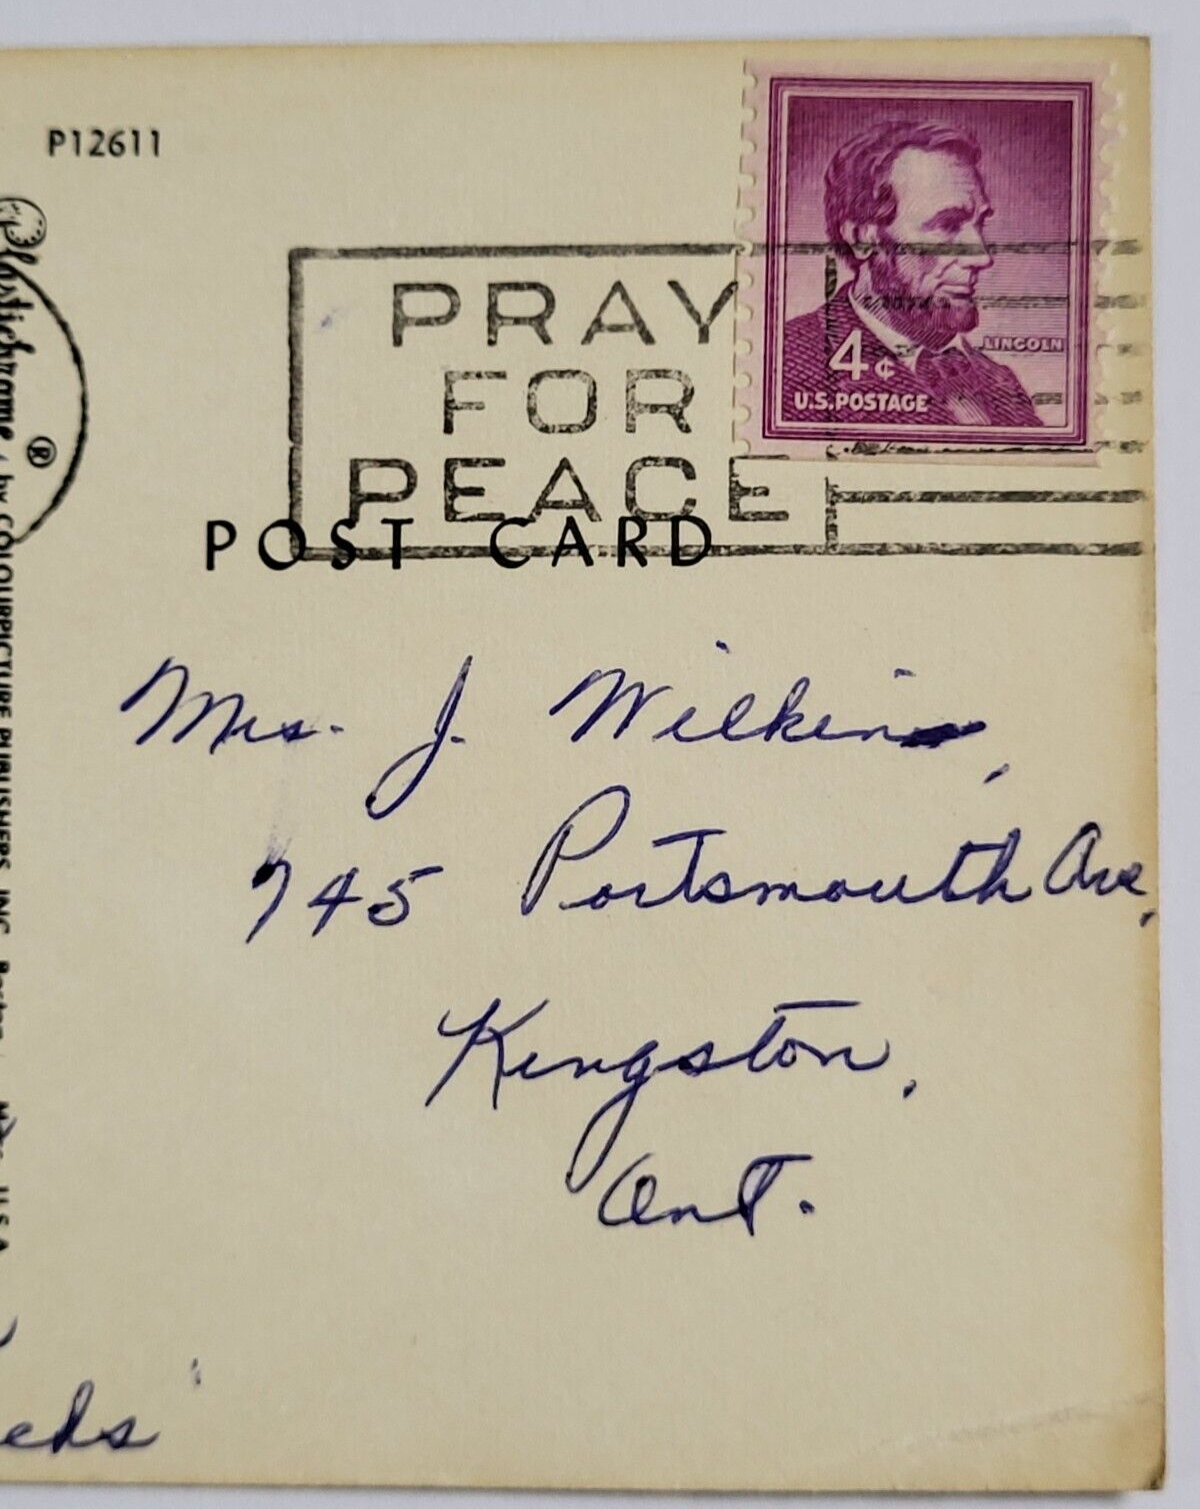 P12611
PRAY
FOR
PEACE
LINCOLN
4¢
U.S.POSTAGE
POST CARD
Plastichrome ® by COLOURPICTURE PUBLISHERS, INC. Boston, Mass. U.S.A.
Mrs. J. Wilkins,
745 Portsmouth Ave,
Kingston,
Ont.